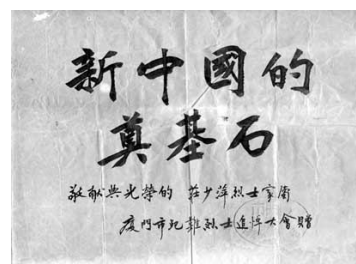 新中國的
奠基石
敬献與光榮的 莊少萍烈士家屬
厦門市死難烈士追悼大會贈